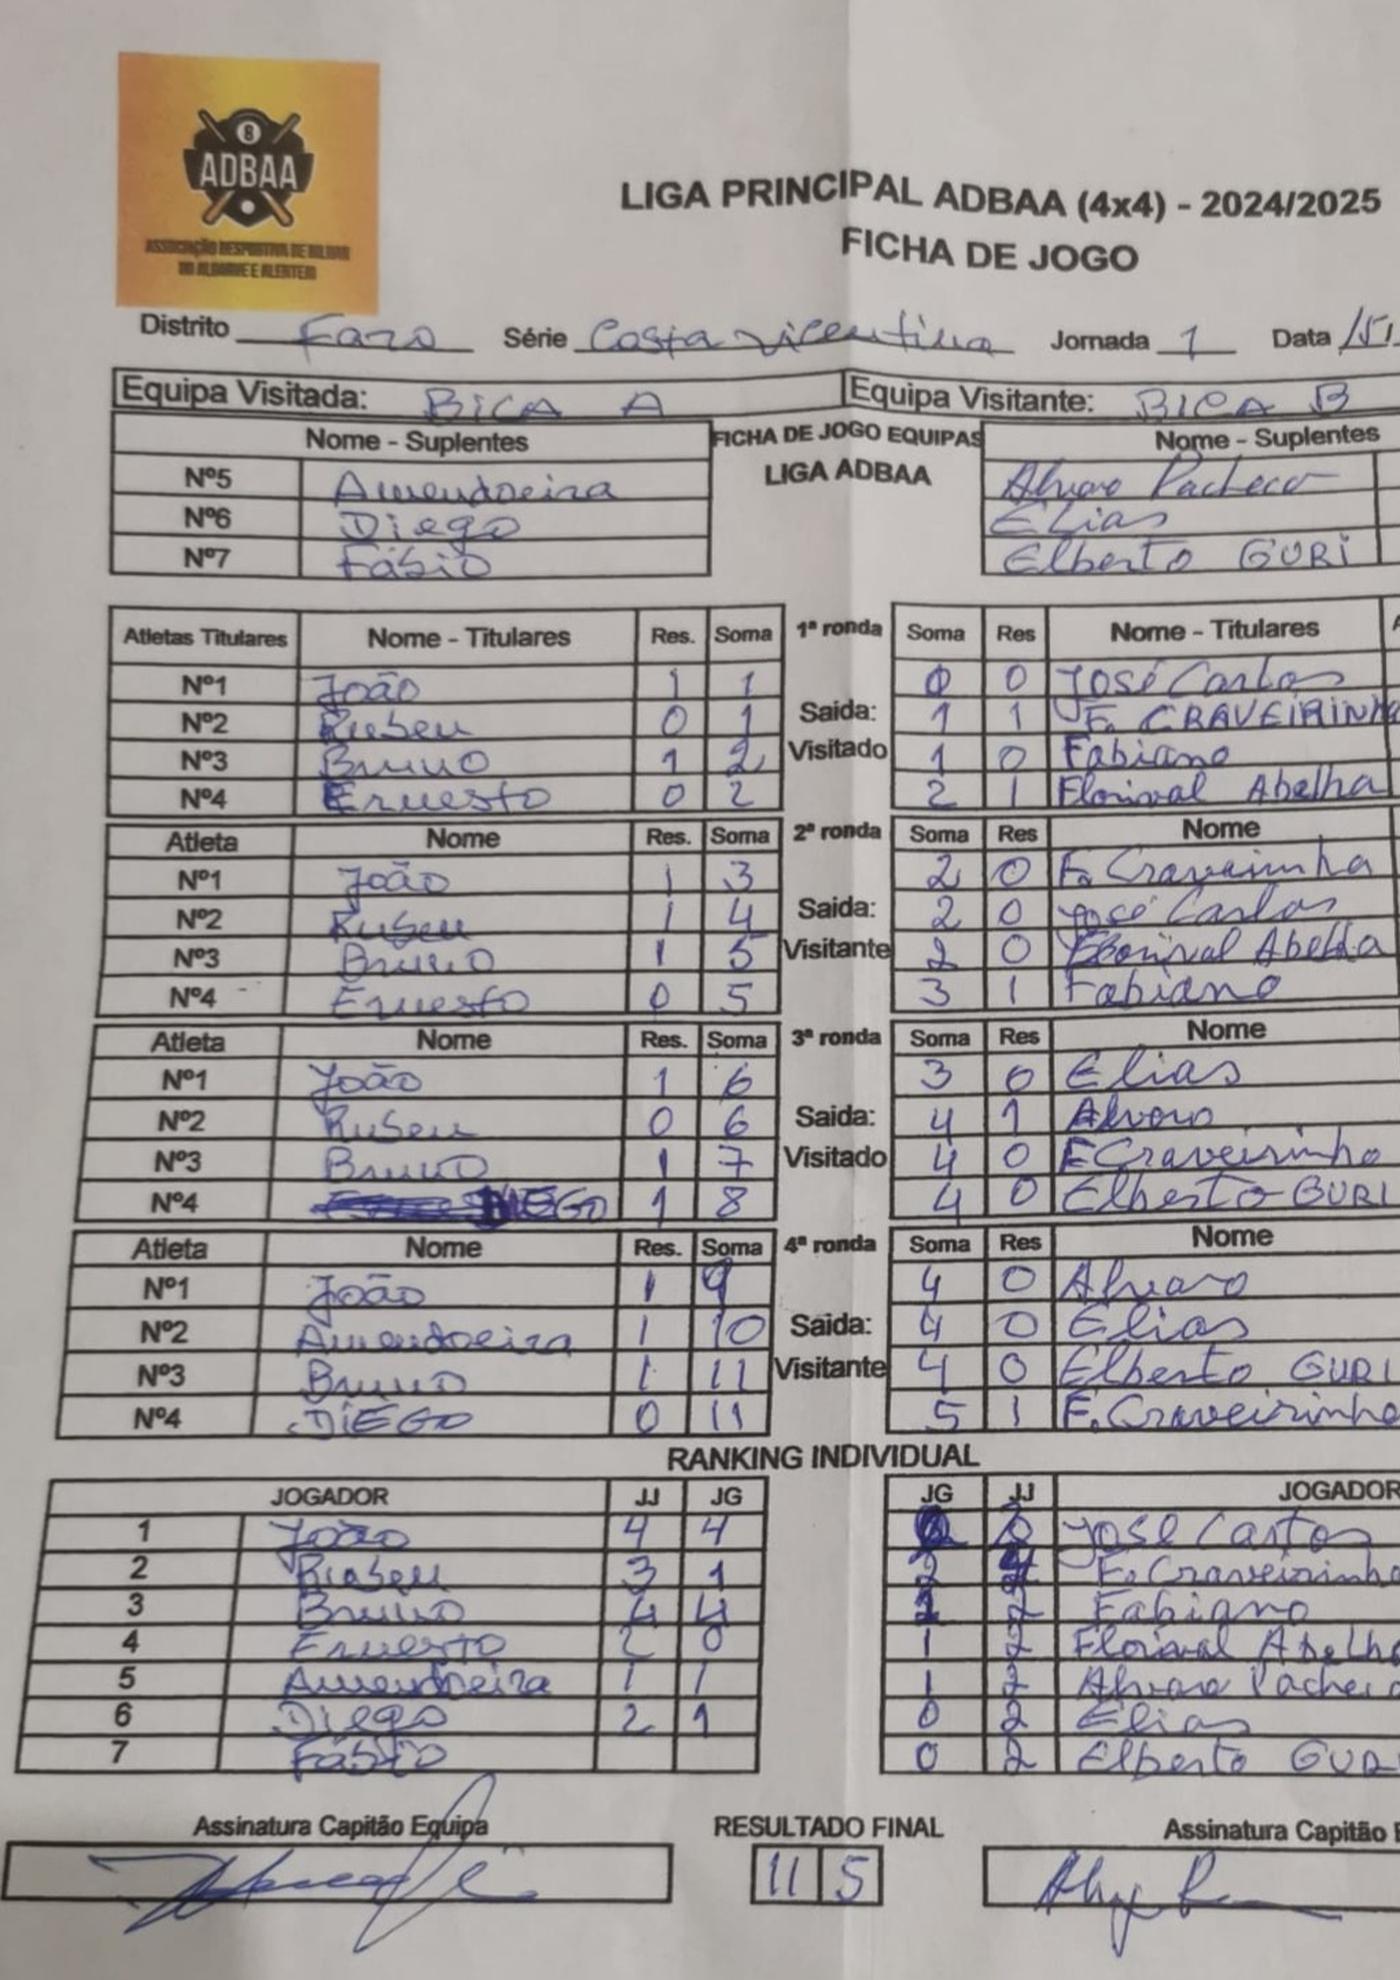 8
ADBAA
ASSOCIAÇÃO DESPORTIVA DE BILHAR
DO ALGARVE E ALENTEJO
LIGA PRINCIPAL ADBAA (4x4) - 2024/2025
FICHA DE JOGO
Distrito Faro Série Costa Vicentina Jornada 1 Data 15/
Equipa Visitada: BICA A Equipa Visitante: BICA B
Nome - Suplentes FICHA DE JOGO EQUIPAS Nome - Suplentes
LIGA ADBAA
Nº5 Amendoeira Alvaro Pacheco
Nº6 Diego Elias
Nº7 Fábio Elberto GURI
Atletas Titulares Nome - Titulares Res. Soma 1ª ronda Soma Res Nome - Titulares A
Nº1 João 1 1 0 0 José Carlos
Nº2 Ruben 0 1 Saida: 1 1 F. CRAVEIRINHA
Nº3 Bruno 1 2 Visitado 1 0 Fabiano
Nº4 Ernesto 0 2 2 1 Florival Abelha
Atleta Nome Res. Soma 2ª ronda Soma Res Nome
Nº1 João 1 3 2 0 F. Craveirinha
Nº2 Ruben 1 4 Saida: 2 0 José Carlos
Nº3 Bruno 1 5 Visitante 2 0 Florival Abelha
Nº4 Ernesto 0 5 3 1 Fabiano
Atleta Nome Res. Soma 3ª ronda Soma Res Nome
Nº1 João 1 6 3 0 Elias
Nº2 Ruben 0 6 Saida: 4 1 Alvaro
Nº3 Bruno 1 7 Visitado 4 0 F Craveirinha
Nº4 DIEGO 1 8 4 0 Elberto GURI
Atleta Nome Res. Soma 4ª ronda Soma Res Nome
Nº1 João 1 9 4 0 Alvaro
Nº2 Amendoeira 1 10 Saida: 4 0 Elias
Nº3 Bruno 1 11 Visitante 4 0 Elberto GURI
Nº4 DIEGO 0 11 5 1 F. Craveirinha
RANKING INDIVIDUAL
JOGADOR JJ JG JG JJ JOGADOR
1 João 4 4 2 José Carlos
2 Ruben 3 1 2 4 F. Craveirinha
3 Bruno 4 4 1 2 Fabiano
4 Ernesto 2 0 1 2 Florival Abelha
5 Amendoeira 1 1 1 2 Alvaro Pacheco
6 Diego 2 1 0 2 Elias
7 Fábio 0 2 Elberto GURI
Assinatura Capitão Equipa RESULTADO FINAL Assinatura Capitão E
11 5